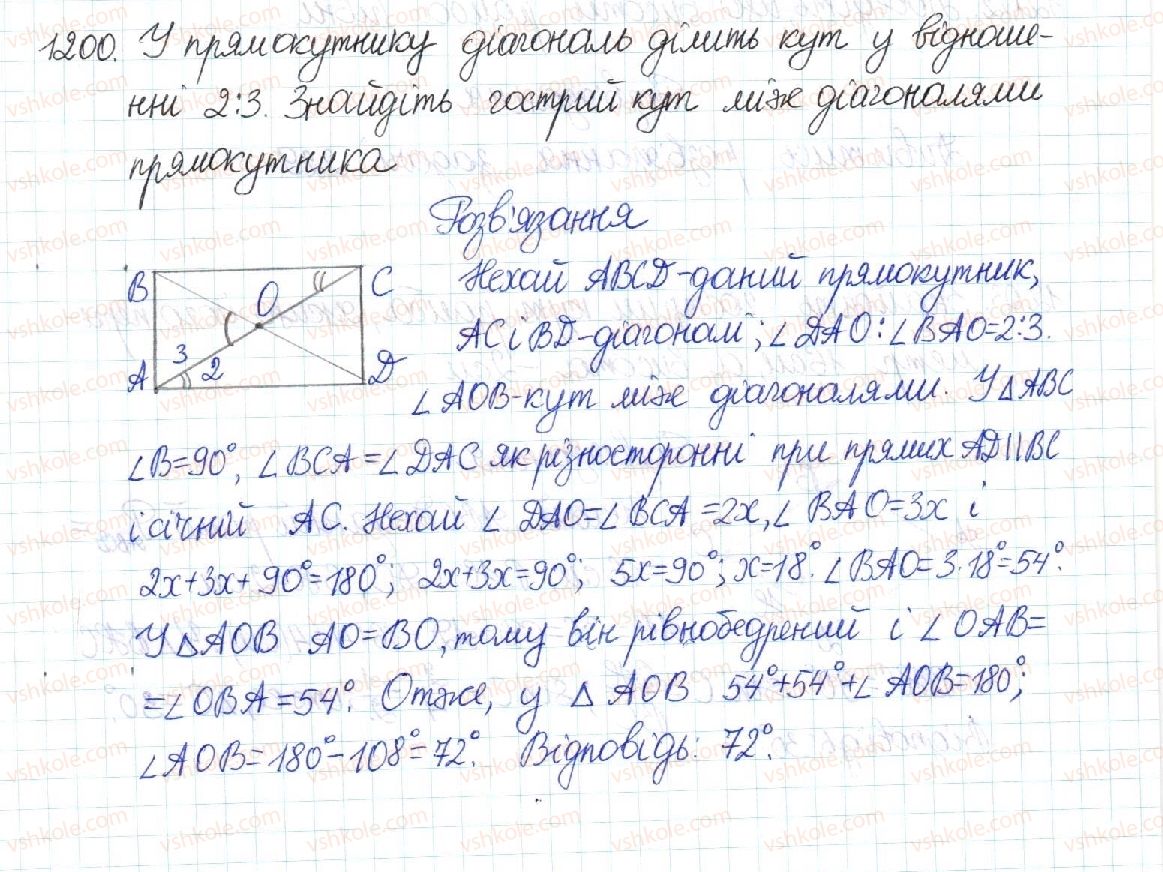 1200. У прямокутнику діагональ ділить кут у відноше-
нні 2:3. Знайдіть гострий кут між діагоналями
прямокутника
Розв'язання
B O C
3
A 2 D
Нехай ABCD-даний прямокутник,
AC і BD-діагоналі; ∠DAO:∠BAO=2:3.
∠AOB-кут між діагоналями. У △ABC
∠B=90°, ∠BCA=∠DAC як різносторонні при прямих AD||BC
і січній AC. Нехай ∠DAO=∠BCA=2x, ∠BAO=3x і
2x+3x+90°=180°; 2x+3x=90°; 5x=90°; x=18°. ∠BAO=3·18°=54°.
У △AOB AO=BO, тому він рівнобедрений і ∠OAB=
=∠OBA=54°. Отже, у △AOB 54°+54°+∠AOB=180°;
∠AOB=180°-108°=72°. Відповідь: 72°.
vshkole.com